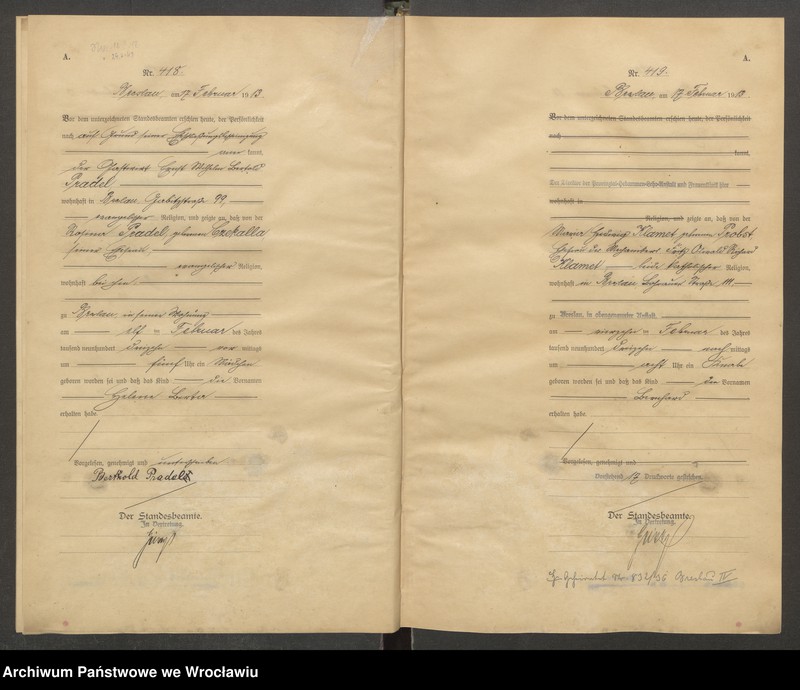 A.
Nr. 418.
Breslau, am 17 Februar 1913.
Vor dem unterzeichneten Standesbeamten erschien heute, der Persönlichkeit
nach auf Grund seiner
kannt,
der Gastwirt Ernst Wilhelm Bertold
Pradel
wohnhaft in Breslau Gabitzstraße 99,
evangelischer Religion, und zeigte an, daß von der
Pradel, geborenen Czekalla
seiner Ehefrau,
evangelischer Religion,
wohnhaft bei ihm
zu Breslau, in seiner Wohnung
am elf ten Februar des Jahres
tausend neunhundert dreizehn vor mittags
um fünf Uhr ein Mädchen
geboren worden sei und daß das Kind die Vornamen
Helene Berta
erhalten habe.
Vorgelesen, genehmigt und unterschrieben
Berthold Pradel
Der Standesbeamte.
In Vertretung.
A.
Nr. 419.
Breslau, am 17 Februar 1913
Vor dem unterzeichneten Standesbeamten erschien heute, der Persönlichkeit
nach
kannt,
wohnhaft in
Religion, und zeigte an, daß von der
Maria Hedwig Klamet, geborenen Probst
Ehefrau des Mechanikers Fritz Oswald Richard
Klamet beide katholischer Religion,
wohnhaft in Breslau Straße 111
zu Breslau, in obengenannter Anstalt.
am Februar des Jahres
tausend neunhundert dreizehn nach mittags
um acht Uhr ein Knabe
geboren worden sei und daß das Kind die Vornamen
Bernhard
erhalten habe.
Vorgelesen, genehmigt und
Vorstehend 17 Druckworte gestrichen.
Der Standesbeamte.
In Vertretung.
Breslau IV
Archiwum Państwowe we Wrocławiu